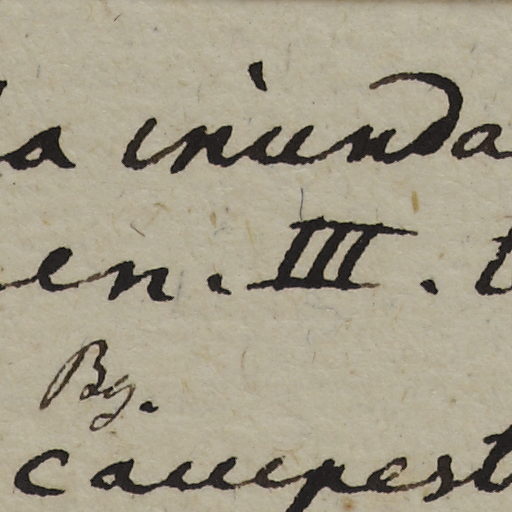 a inunda
en. III.
By.
campest